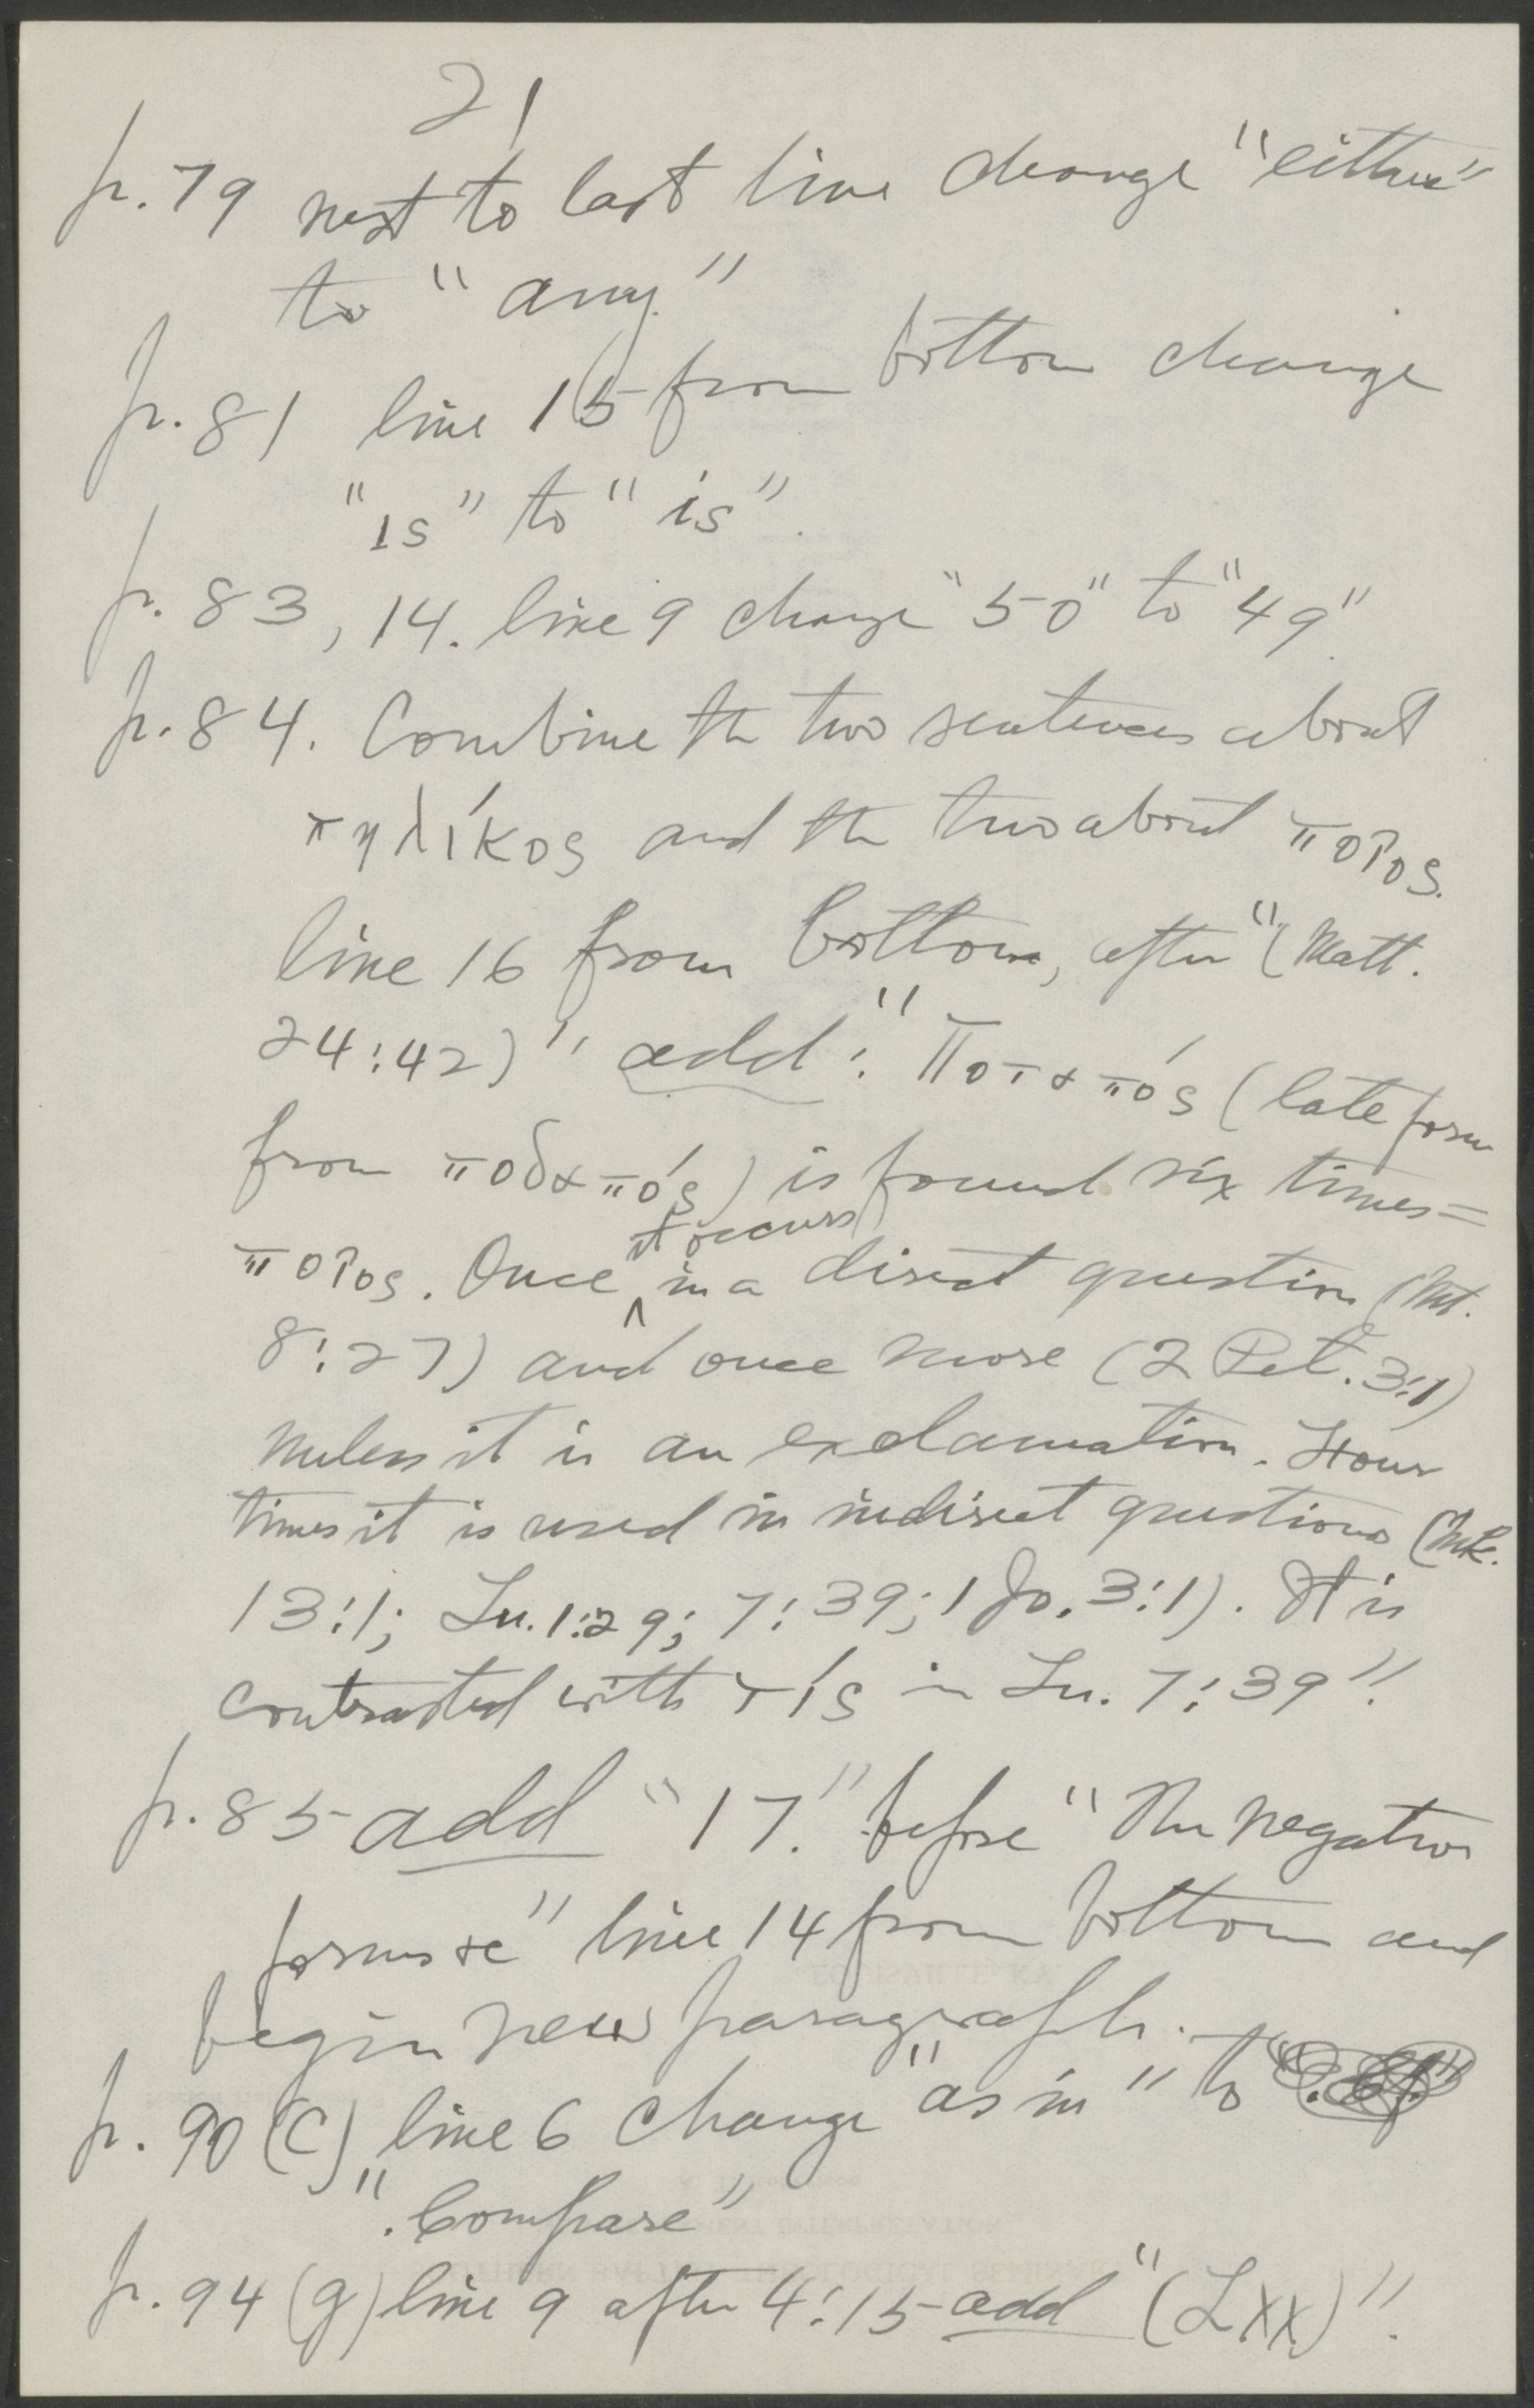 21
p. 79 next to last line change "either"
to "any."
p. 81 line 15 from bottom change
"ıs" to "is".
p. 83, 14. line 9 change "50" to "49".
p. 84. Combine the two sentences about
πηλίκος and the two about ποῖος.
line 16 from bottom, after "(Matt.
24:42)" add: "Ποταπός (late form
from ποδαπός) is found six times =
ποῖος. Once it occurs in a direct question (Mt.
8:27) and once more (2 Pet. 3:1)
unless it is an exclamation. Four
times it is used in indirect questions (Mk.
13:1; Lu. 1:29; 7:39; 1 Jo. 3:1). It is
contrasted with τίς in Lu. 7:39".
p. 85 add "17." before "The negative
forms οὐ" line 14 from bottom and
begin new paragraph.
p. 90 (c) line 6 change "as in" to
". Compare"
p. 94 (g) line 9 after 4:15 add "(LXX)".